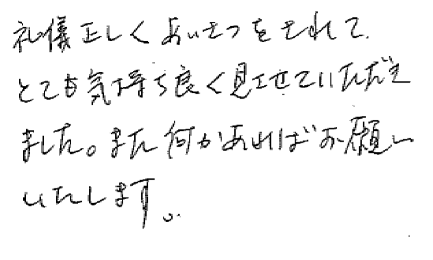 礼儀正しくあいさつをされて、
とても気持ち良く見させていただき
ました。また何かあればお願い
いたします。